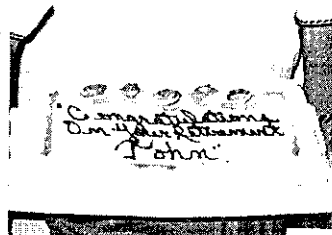 "Congratulations
On Your Retirement
John"